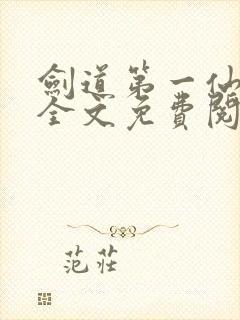 劍道第一仙
全文免費閱
范莊